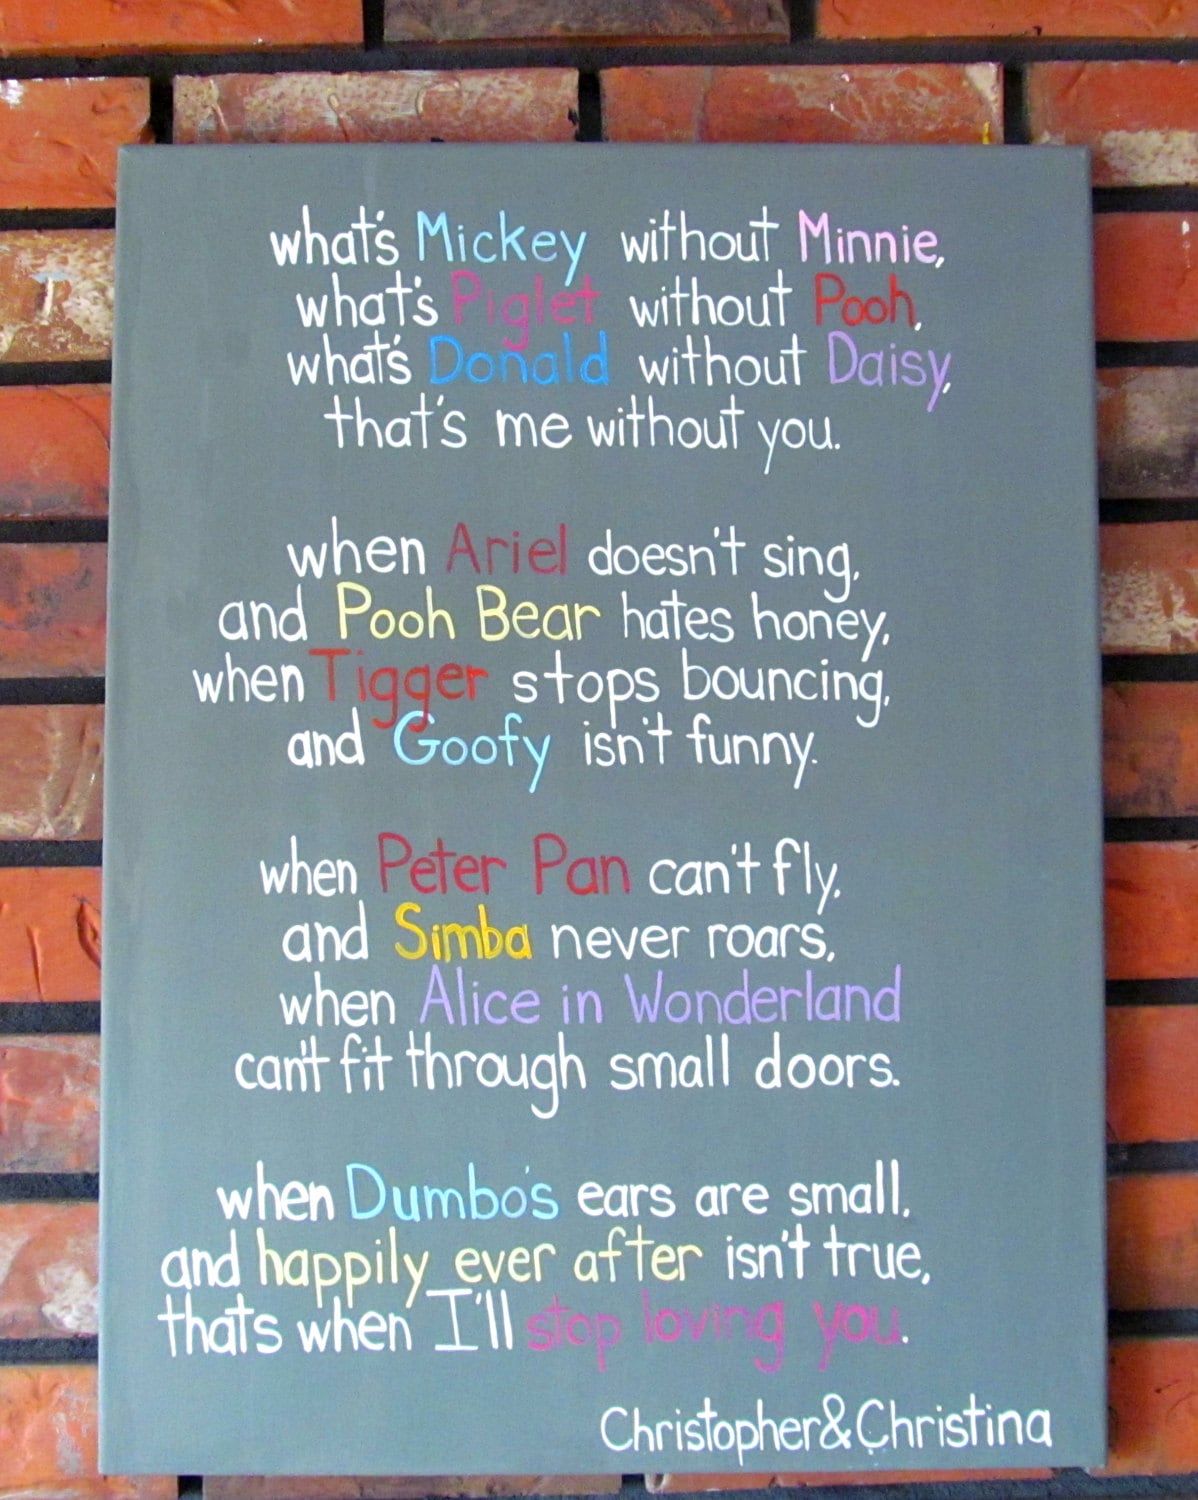 what's Mickey without Minnie,
what's Piglet without Pooh,
what's Donald without Daisy,
that's me without you.
when Ariel doesn't sing,
and Pooh Bear hates honey,
when Tigger stops bouncing,
and Goofy isn't funny.
when Peter Pan can't fly,
and Simba never roars,
when Alice in Wonderland
can't fit through small doors.
when Dumbo's ears are small,
and happily ever after isn't true,
thats when I'll stop loving you.
Christopher & Christina